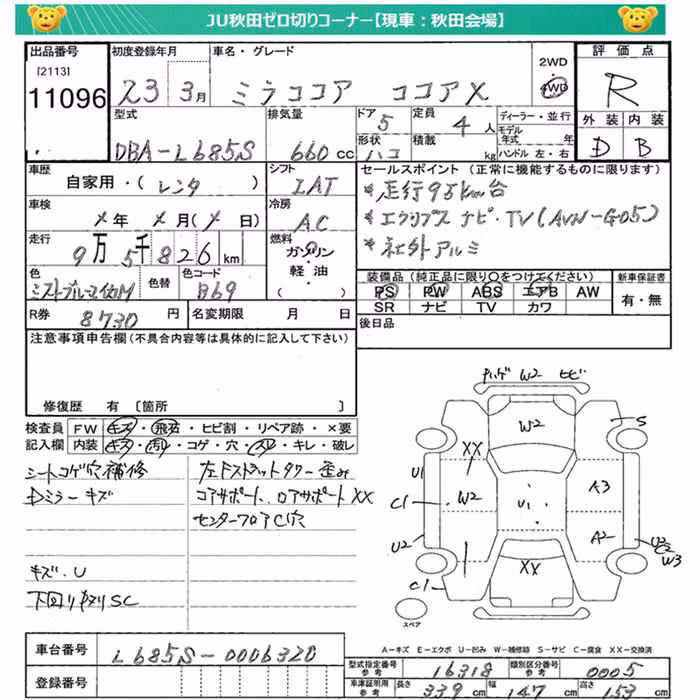 JU秋田ゼロ切りコーナー【現車：秋田会場】
出品番号 初度登録年月 車名・グレード 評価点
[2113]
11096 23 3月 ミラココア ココアX 2WD 4WD R
型式 排気量 ドア 5 定員 4 人 ディーラー・並行 外装 内装
モデル年式 年
DBA-L685S 660 cc 形状 ハコ 積載 kg ハンドル 左・右 D B
車歴 シフト セールスポイント (正常に機能するものに限ります)
自家用・( レンタ ) IAT *走行95km台
車検 冷房 *エクリプス ナビ・TV(AVN-G05)
メ年 メ月(メ日) AC *社外アルミ
走行 9万5千826km 燃料 ガソリン・軽油・( )
装備品 (純正品に限り○をつけてください) 新車保証書
色 色替 色コード PS PW ABS エアB AW 有・無
B69 SR ナビ TV カワ
R券 8730 円 名変期限 月 日 後日品
注意事項申告欄(不具合内容等は具体的に記入して下さい)
修復歴 有 〔箇所 〕
検査員 FW キズ・飛石・ヒビ割・リペア跡・×要
記入欄 内装 キズ・汚れ・コゲ・穴・スレ・キレ・破レ
シートコゲ穴補修
Dミラーキズ
左Fストラットタワー歪み
コアサポート、ロアサポートXX
センターフロアC穴
キズ・U
下回りサビSC
W2 ヒビ
W2
S
XX
U1
C1
W2
U1
A3
U2
A2
U2
C2
W3
XX
C1
スペア
車台番号 L685S-0006320
A-キズ E-エクボ U-凹み W-補修跡 S-サビ C-腐食 XX-交換済
登録番号
型式指定番号 参考 16318 類別区分番号 参考 0005
車庫証明用 参考 長さ 339 cm 幅 147 cm 高さ 153 cm